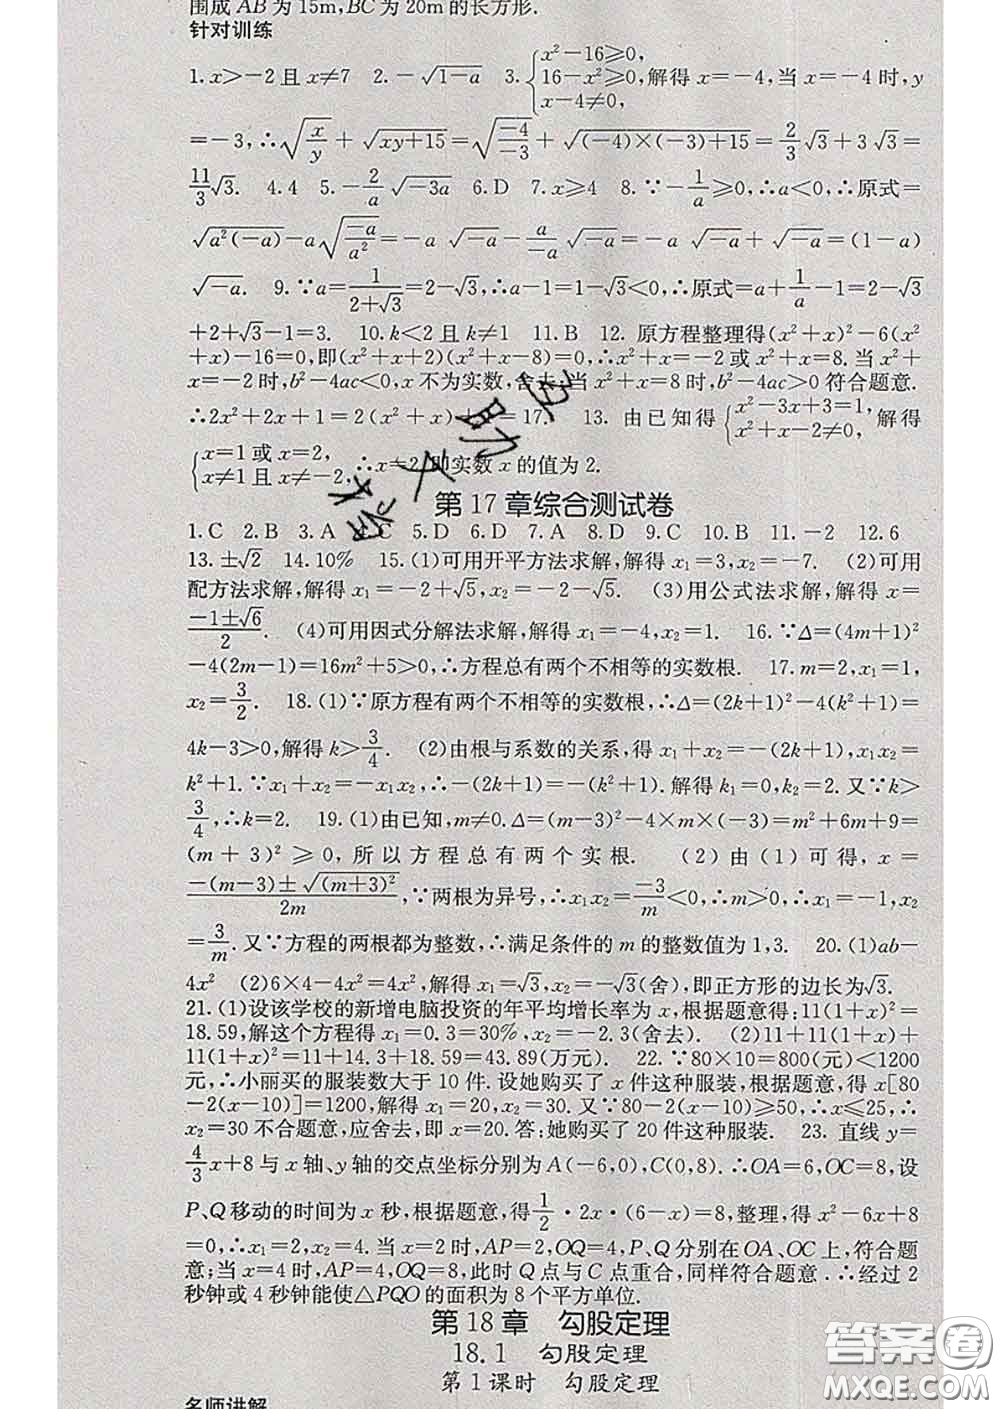 围成 AB 为 15m,BC 为 20m 的长方形.
针对训练
1. x>-2 且 x≠7  2. -√(1-a)  3. {x²-16≥0, 16-x²≥0, x-4≠0, 解得 x=-4,当 x=-4 时,y
=-3,∴√(x/y)+√(xy+15)=√(-4/-3)+√((-4)×(-3)+15)=2/3√3+3√3=
11/3√3.  4. 4  5. -2/a√(-3a)  6. D  7. x≥4  8. ∵-1/a≥0,∴a<0,∴原式=
√(a²(-a))-a√(-a/a²)=-a√(-a)-a/(-a)√(-a)=-a√(-a)+√(-a)=(1-a)
√(-a).  9. ∵a=1/(2+√3)=2-√3,∴a-1=1-√3<0,∴原式=a+1/a-1=2-√3
+2+√3-1=3.  10. k<2 且 k≠1  11. B  12. 原方程整理得(x²+x)²-6(x²
+x)-16=0,即(x²+x+2)(x²+x-8)=0,∴x²+x=-2 或 x²+x=8. 当 x²+
x=-2 时,b²-4ac<0,x 不为实数,舍去,当 x²+x=8 时,b²-4ac>0 符合题意.
∴2x²+2x+1=2(x²+x)+1=17.  13. 由已知得{x²-3x+3=1, x²+x-2≠0, 解得
{x=1 或 x=2, x≠1 且 x≠-2, ∴x=2,即实数 x 的值为 2.
第 17 章综合测试卷
1. C  2. B  3. A  4. C  5. D  6. D  7. A  8. D  9. C  10. B  11. -2  12. 6
13. ±√2  14. 10%  15. (1)可用开平方法求解,解得 x₁=3,x₂=-7.  (2)可用
配方法求解,解得 x₁=-2+√5,x₂=-2-√5.  (3)用公式法求解,解得 x=
(-1±√6)/2.  (4)可用因式分解法求解,解得 x₁=-4,x₂=1.  16. ∵Δ=(4m+1)²
-4(2m-1)=16m²+5>0,∴方程总有两个不相等的实数根.  17. m=2,x₁=1,
x₂=3/2.  18. (1)∵原方程有两个不相等的实数根,∴Δ=(2k+1)²-4(k²+1)=
4k-3>0,解得 k>3/4.  (2)由根与系数的关系,得 x₁+x₂=-(2k+1),x₁x₂=
k²+1. ∵x₁+x₂=-x₁x₂,∴-(2k+1)=-(k²+1). 解得 k₁=0,k₂=2. 又∵k>
3/4,∴k=2.  19. (1)由已知,m≠0. Δ=(m-3)²-4×m×(-3)=m²+6m+9=
(m+3)²≥0,所以方程总有两个实根.  (2)由(1)可得,x=
(-(m-3)±√((m+3)²))/2m,∵两根为异号,∴x₁x₂=-3/m<0,∴m>0,∴x₁=-1,x₂
=3/m. 又∵方程的两根都为整数,∴满足条件的 m 的整数值为 1,3.  20. (1)ab-
4x²  (2)6×4-4x²=4x²,解得 x₁=√3,x₂=-√3(舍),即正方形的边长为√3.
21. (1)设该学校的新增电脑投资的年平均增长率为 x,根据题意得:11(1+x)²=
18.59,解这个方程得 x₁=0.3=30%,x₂=-2.3(舍去).  (2)11+11(1+x)+
11(1+x)²=11+14.3+18.59=43.89(万元).  22. ∵80×10=800(元)<1200
元,∴小丽买的服装数大于 10 件. 设她购买了 x 件这种服装,根据题意,得 x[80
-2(x-10)]=1200,解得 x₁=20,x₂=30. 又∵80-2(x-10)≥50,∴x≤25,∴
x₂=30 不合题意,应舍去,即 x=20. 答:她购买了 20 件这种服装.  23. 直线 y=
4/3x+8 与 x 轴、y 轴的交点坐标分别为 A(-6,0),C(0,8). ∴OA=6,OC=8,设
P、Q 移动的时间为 x 秒,根据题意,得1/2·2x·(6-x)=8,整理,得 x²-6x+8
=0,∴x₁=2,x₂=4. 当 x=2 时,AP=2,OQ=4,P、Q 分别在 OA、OC 上,符合题
意;当 x=4 时,AP=4,OQ=8,此时 Q 点与 C 点重合,同样符合题意. ∴经过 2
秒钟或 4 秒钟能使△PQO 的面积为 8 个平方单位.
第 18 章 勾股定理
18.1 勾股定理
第 1 课时 勾股定理
名师讲解
答案圈
MXQE.COM